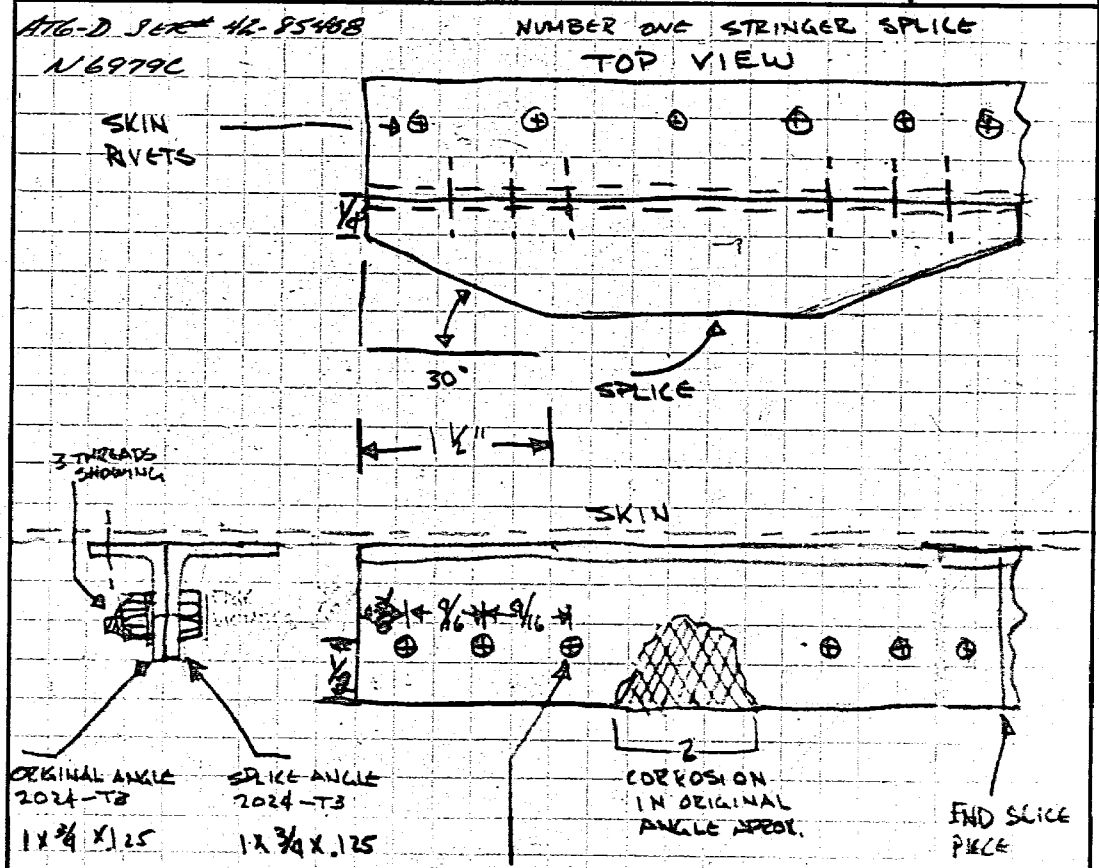 AT6-D SER# 42-85488
N6979C
NUMBER ONE STRINGER SPLICE
TOP VIEW
SKIN
RIVETS
1/4
30°
SPLICE
1 1/2"
3 THREADS
SHOWING
SKIN
9/16
9/16
ORIGINAL ANGLE
2024-T3
1 x 3/4 x .125
SPLICE ANGLE
2024-T3
1 x 3/4 x .125
2
CORROSION
IN ORIGINAL
ANGLE APROX.
END SLICE
PIECE